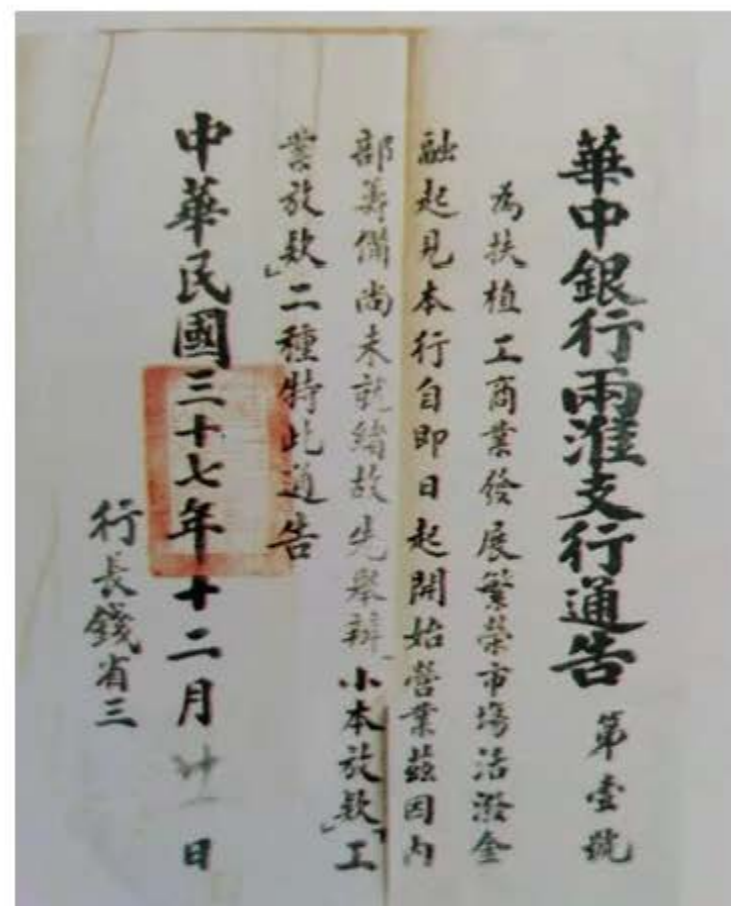 華中銀行兩淮支行通告 第壹號
為扶植工商業發展繁榮市場活潑金
融起見本行自即日起開始營業茲因內
部籌備尚未就緒故先舉辦「小本放款」「工
業放款」二種特此通告
中華民國三十七年十二月廿一日
行長錢省三